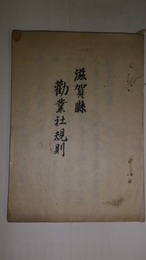 滋賀縣
勸業社規則